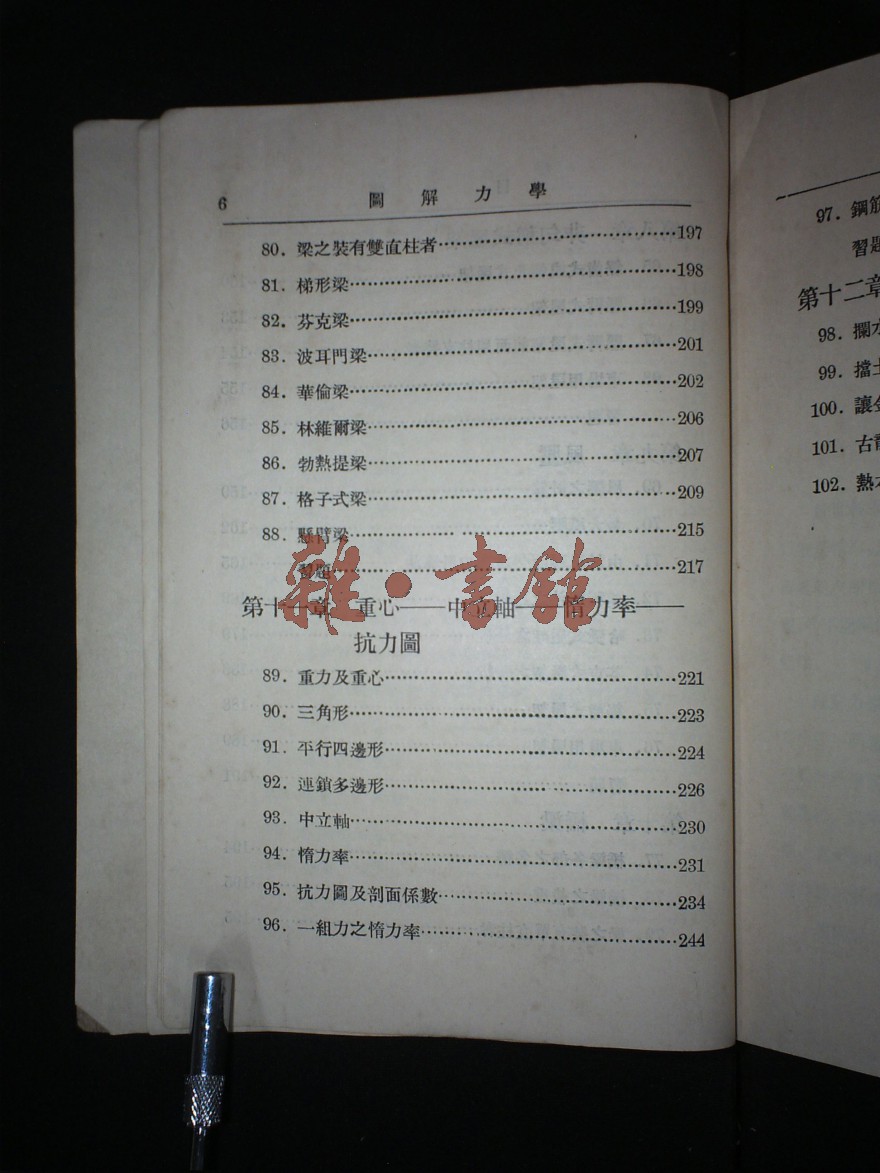 6 圖解力學
80. 梁之裝有雙直柱者……197
81. 梯形梁……198
82. 芬克梁……199
83. 波耳門梁……201
84. 華倫梁……202
85. 林維爾梁……206
86. 勃熱提梁……207
87. 格子式梁……209
88. 懸臂梁……215
習題……217
第十一章 重心——中立軸——惰力率——
抗力圖
89. 重力及重心……221
90. 三角形……223
91. 平行四邊形……224
92. 連鎖多邊形……226
93. 中立軸……230
94. 惰力率……231
95. 抗力圖及剖面係數……234
96. 一組力之惰力率……244
雜·書館
97. 鋼筋
習題
第十二章
98. 攔水
99. 擋土
100. 讓
101. 古
102. 熱